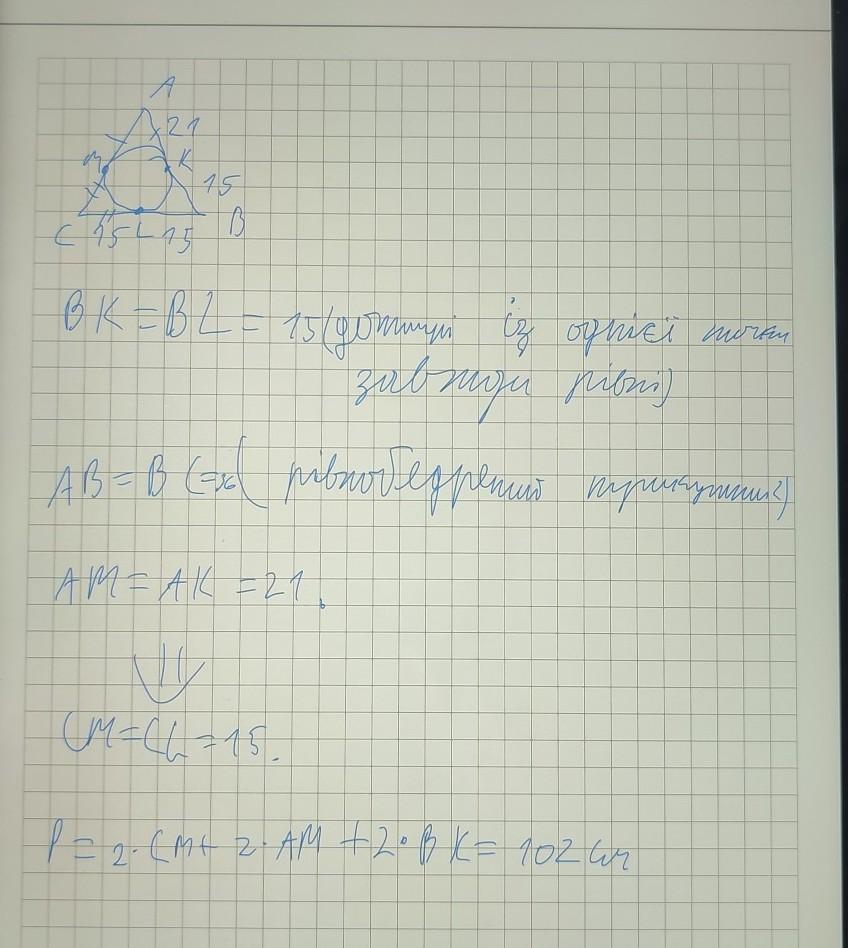 A
21
M
K
15
C 15 L 15 B
BK = BL = 15 (дотичні із однієї точки
завжди рівні)
AB = BC = x ( рівнобедрений трикутник)
AM = AK = 21.
CM = CL = 15.
P = 2 · CM + 2 · AM + 2 · BK = 102 см